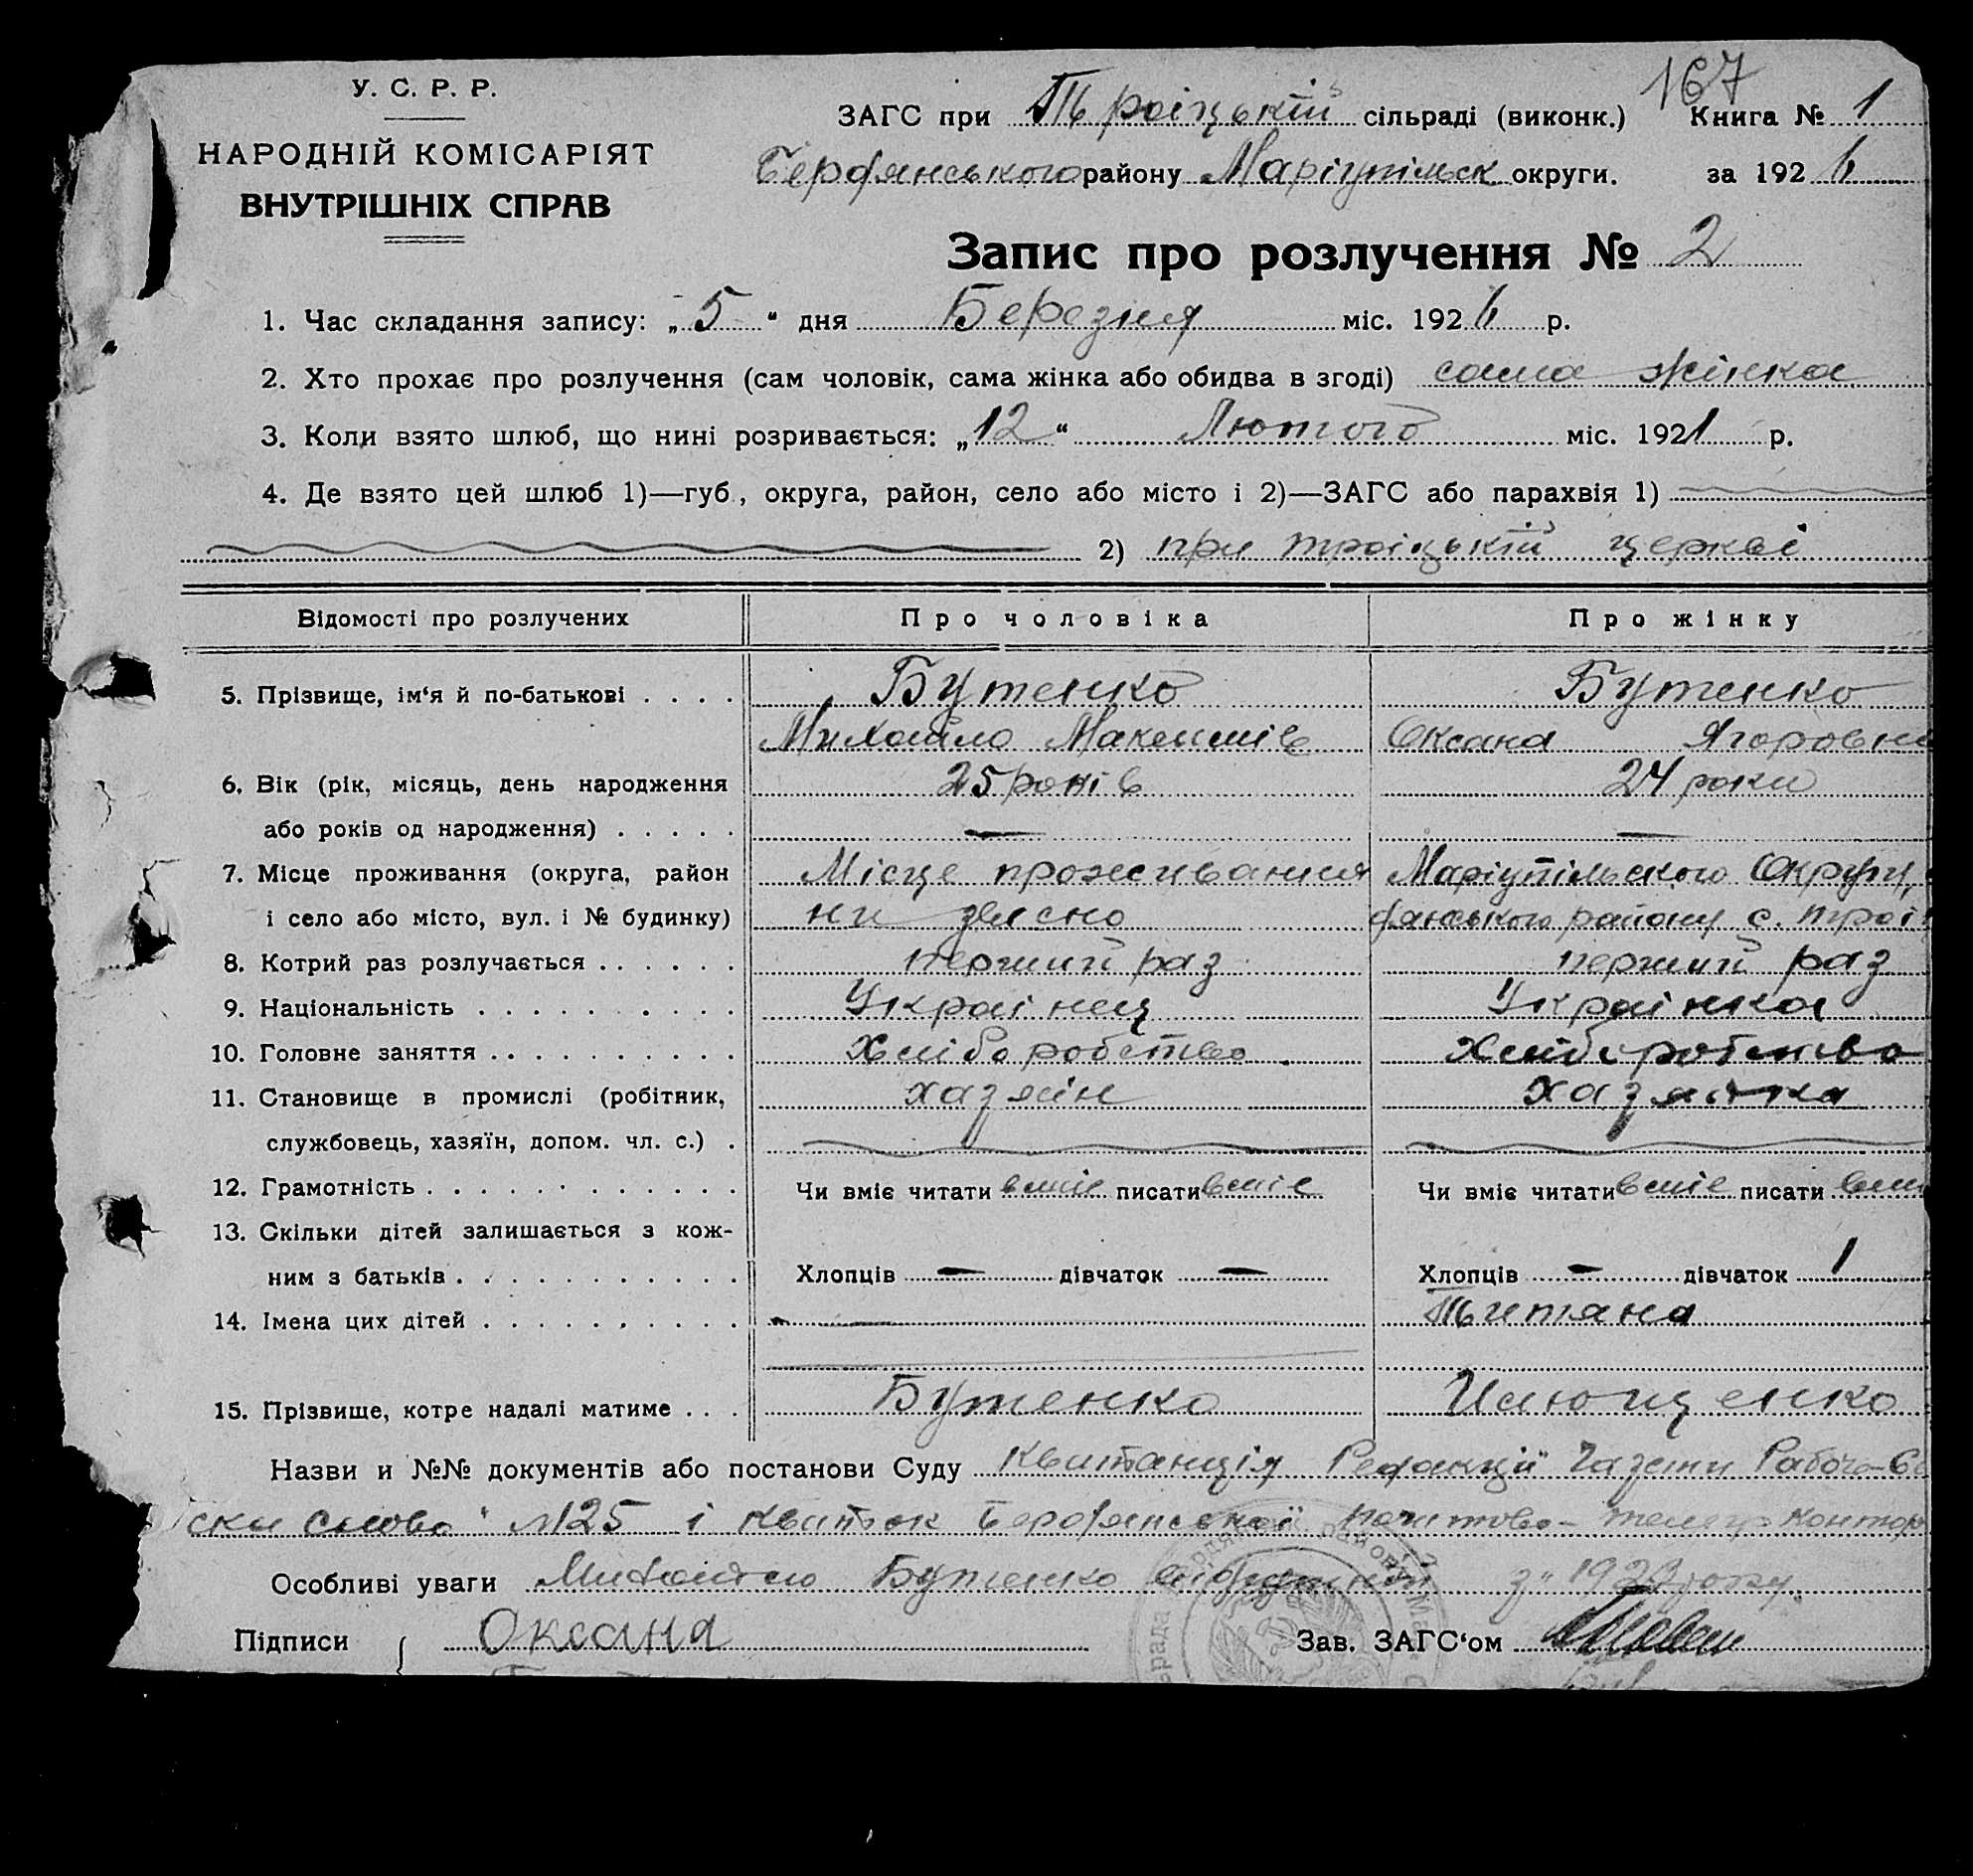 167
У. С. Р. Р.
НАРОДНІЙ КОМІСАРІЯТ
ВНУТРІШНІХ СПРАВ
ЗАГС при Троіцькій сільраді (виконк.) Книга № 1
Бердянського району Маріупільск округи. за 1926
Запис про розлучення № 2
1. Час складання запису: „5“ дня Березня міс. 1926 р.
2. Хто прохає про розлучення (сам чоловік, сама жінка або обидва в згоді) сама жінка
3. Коли взято шлюб, що нині розривається: „12“ Лютого міс. 1921 р.
4. Де взято цей шлюб 1)—губ., округа, район, село або місто і 2)—ЗАГС або парахвія 1)
2) при троіцькій церкві
Відомості про розлучених Про чоловіка Про жінку
5. Прізвище, ім‘я й по-батькові . . . . Бутенко Бутенко
Михайло Максимів Оксана Ягоровна
6. Вік (рік, місяць, день народження 25 років 24 роки
або років од народження) . . . . . — —
7. Місце проживання (округа, район Місце проживання Маріупільского Округу,
і село або місто, вул. і № будинку) ни звясно дянського району с. Трої
8. Котрий раз розлучається . . . . . . перший раз перший раз
9. Національність . . . . . . . . . . Украінец Украінка
10. Головне заняття . . . . . . . . . . Хліборобство Хліборобство
11. Становище в промислі (робітник, хазяін хазяйка
службовець, хазяїн, допом. чл. с.) .
12. Грамотність . . . . . . . . . . . . Чи вміє читати вміє писати вміє Чи вміє читати вміє писати вмі
13. Скільки дітей залишається з кож-
ним з батьків . . . . . . . . . . . Хлопців — дівчаток — Хлопців — дівчаток 1
14. Імена цих дітей . . . . . . . . . . Титяна
15. Прізвище, котре надалі матиме . . . Бутенко Илющенко
Назви и №№ документів або постанови Суду Квитанція Редакціі Газети Рабоче-Се
ске слово" №125 і квиток Бердянськоі почтово-телегр контор
Особливі уваги Михайло Бутенко з 1923 року.
Підписи { Оксана Зав. ЗАГС‘ом